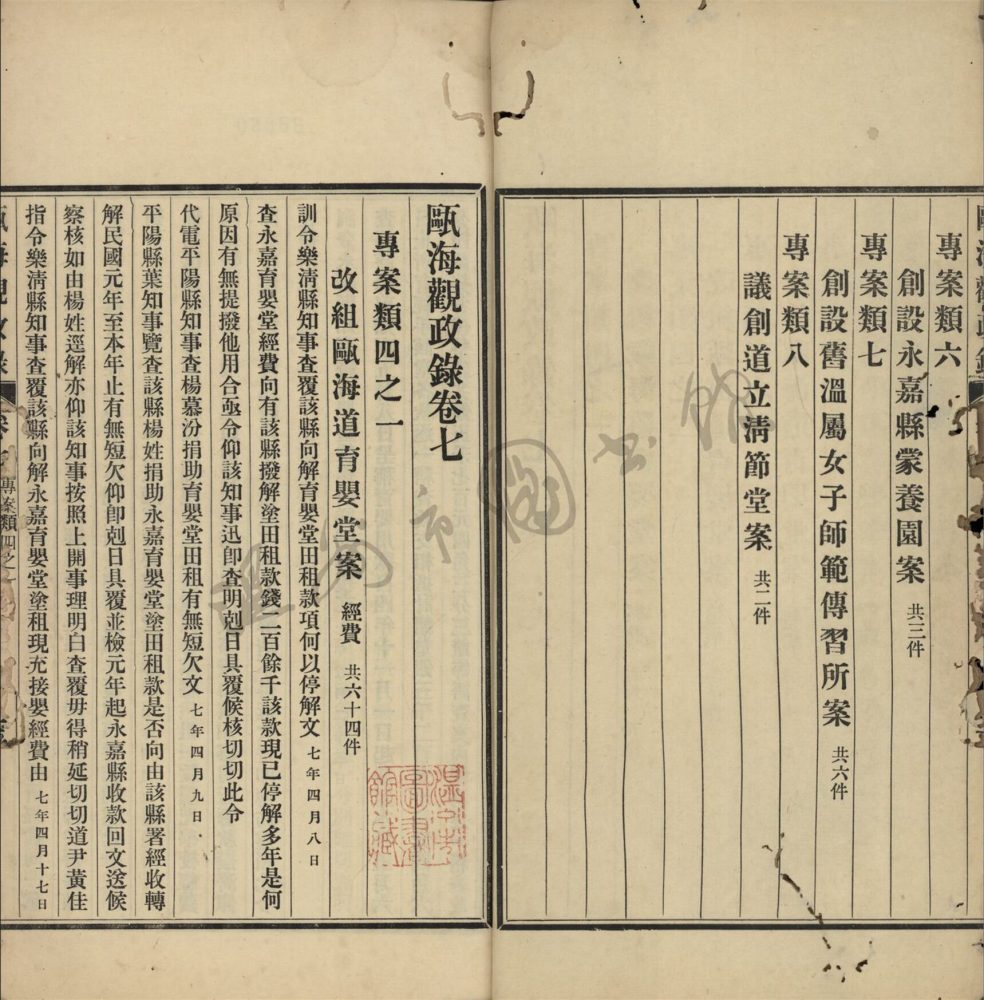 專案類六
創設永嘉縣蒙養園案 共三件
專案類七
創設舊溫屬女子師範傳習所案 共六件
專案類八
議創道立清節堂案 共二件
甌海觀政錄卷七
專案類四之一
改組甌海道育嬰堂案 經費 共六十四件
訓令樂清縣知事查覆該縣向解育嬰堂田租款項何以停解文 七年四月八日
查永嘉育嬰堂經費向有該縣撥解塗田租款錢二百餘千該款現已停解多年是何
原因有無提撥他用合亟令仰該知事迅卽查明剋日具覆候核切切此令
代電平陽縣知事查楊慕汾捐助育嬰堂田租有無短欠文 七年四月九日
平陽縣葉知事覽查該縣楊姓捐助永嘉育嬰堂塗田租款是否向由該縣署經收轉
解民國元年至本年止有無短欠仰卽剋日具覆並檢元年起永嘉縣收款回文送候
察核如由楊姓逕解亦仰該知事按照上開事理明白查覆毋得稍延切切道尹黃佳
指令樂清縣知事查覆該縣向解永嘉育嬰堂塗租現充接嬰經費由 七年四月十七日
專案類四之一
溫州市圖書館藏